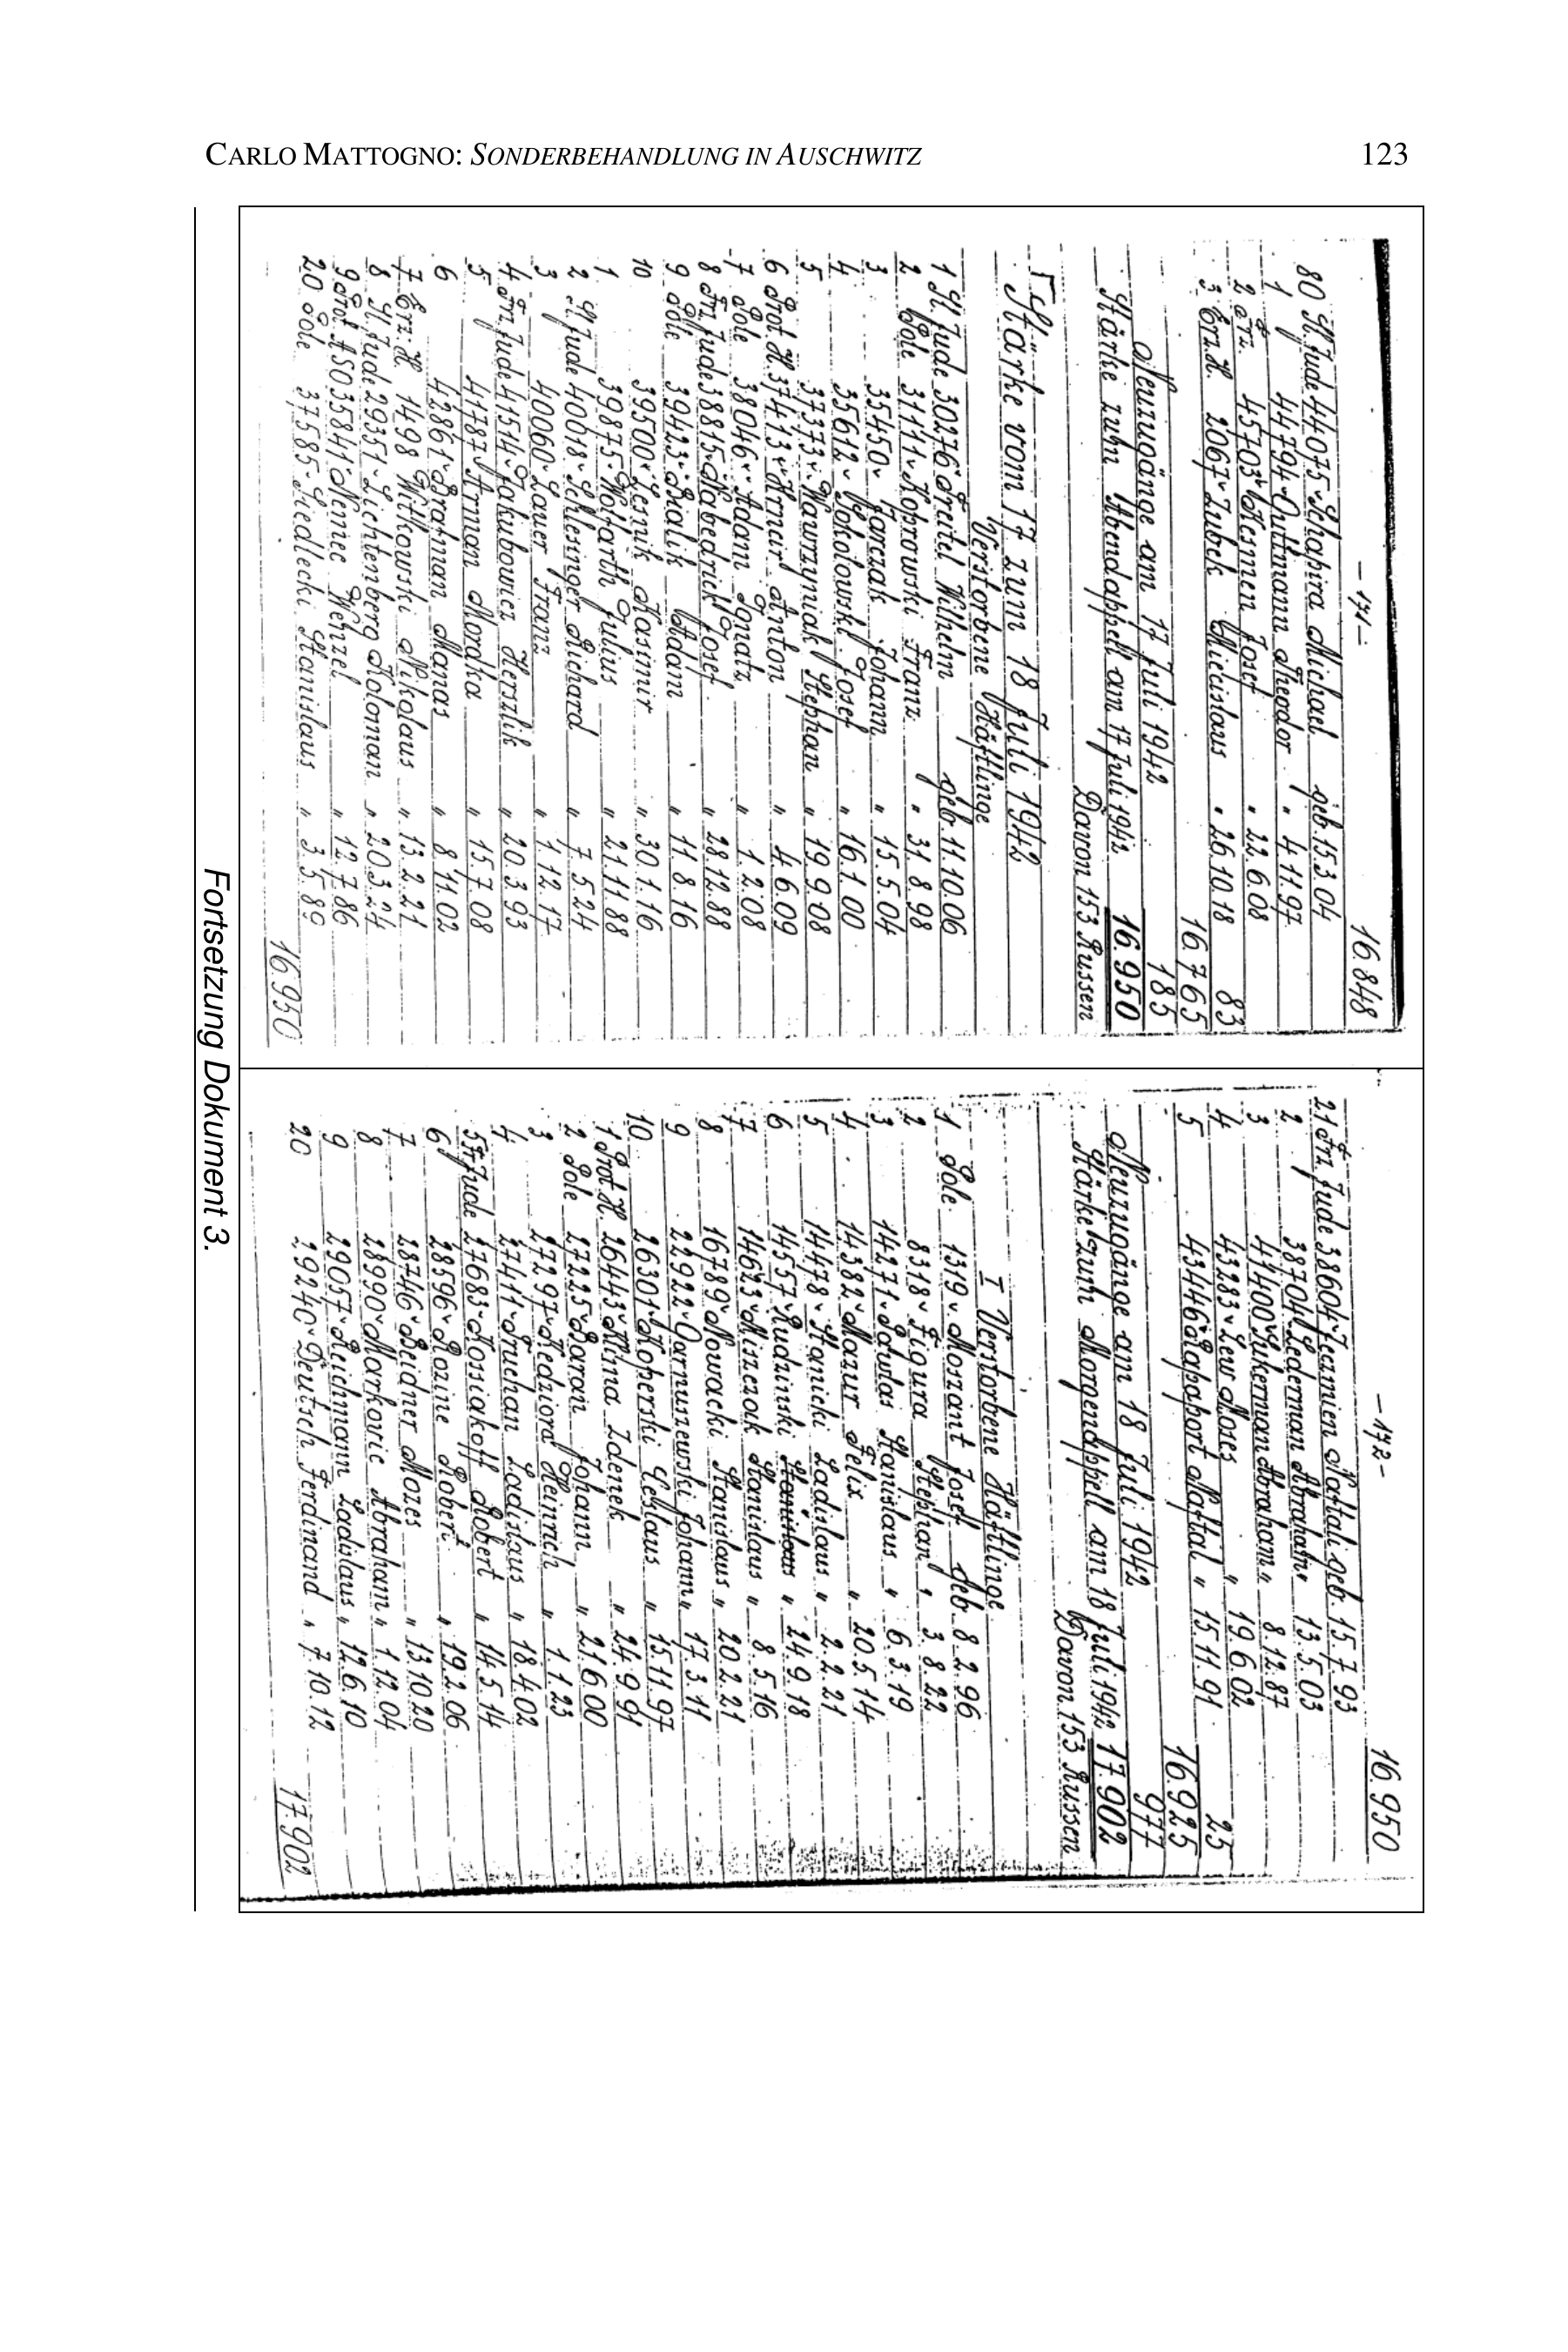 CARLO MATTOGNO: SONDERBEHANDLUNG IN AUSCHWITZ 123
-171-
16.848
80 N. Jude 44075 Schapira Michael geb. 15.3.04
1 44794 Guttmann Theodor " 4.11.97
2 45703 Josef " 22.6.08
3 Erz. H. 2067 Zubek Miecislaus " 26.10.18 83
16.765
Neuzugänge am 17 Juli 1942 185
Stärke zum Abendappell am 17 Juli 1942 16.950
Davon 153 Russen
Stärke vom 17 zum 18 Juli 1942
Verstorbene Häftlinge
1 N. Jude 30276 Freitel Wilhelm geb. 11.10.06
2 Pole 31111 Koprowski Franz " 31.8.98
3 35450 Johann " 15.5.04
4 35612 Sokolowski Josef " 16.1.00
5 37373 Wawrzyniak Stephan " 19.9.08
6 Prot. H. 37413 Anton " 4.6.09
7 Pole 38046 Adam Ignatz " 1.2.08
8 Frz. Jude 38815 Josef " 28.12.88
9 Pole 39423 Bialik Adam " 11.8.16
10 39500 Lesnik Kasimir " 30.1.16
1 39875 Wolfarth Julius " 21.11.88
2 N. Jude 40018 Schlesinger Richard " 7.5.24
3 40060 Lauer Franz " 1.12.17
4 Frz. Jude 41514 Jakubowicz Herszlik " 20.3.93
5 41787 " 15.7.08
6 42861 Bratman Manas " 8.11.02
7 Erz. H. 1498 Witkowski Nikolaus " 13.2.21
8 N. Jude 29351 Lichtenberg Kolonan " 20.3.24
9 Prot. ASO 35841 Nemec Wenzel " 12.7.86
20 Pole 37585 Siedlecki Stanislaus " 3.5.89
16.950
-172-
16.950
21 Frz. Jude 38604 Naftali geb. 15.7.93
2 38704 Lederman Abraham " 13.5.03
3 41400 Zukerman Abraham " 8.12.87
4 43283 Lew Moses " 19.6.02
5 43446 Rapaport Naftal " 15.11.91 25
16.925
Neuzugänge am 18 Juli 1942 977
Stärke zum Morgenappell am 18 Juli 1942 17.902
Davon 153 Russen
I Verstorbene Häftlinge
1 Pole 1319 Moszant Josef geb. 8.2.96
2 8318 Figura Stephan " 3.8.22
3 14271 Pawlas Stanislaus " 6.3.19
4 14382 Mazur Felix " 20.5.14
5 14478 Stanicki Ladislaus " 2.2.21
6 14557 Rudzinski Stanislaus " 24.9.18
7 14623 Stanislaus " 8.5.16
8 16789 Nowacki Stanislaus " 20.2.21
9 22922 Garnuszewski Johann " 17.3.11
10 26301 Koperski Ceslaus " 15.11.97
1 Prot. H. 26443 Zdenek " 24.9.91
2 Pole 27225 Baran Johann " 21.6.00
3 27297 Kedziora Heinrich " 1.1.23
4 27411 Truchan Ladislaus " 18.4.02
5 Fr. Jude 27683 Kossiakoff Robert " 14.5.14
6 28596 Rozine Robert " 19.2.06
7 28746 Seidner Mozes " 13.10.20
8 28990 Markovic Abraham " 1.12.04
9 29057 Reichmann Ladislaus " 12.6.10
20 29240 Deutsch Ferdinand " 7.10.12
17.902
Fortsetzung Dokument 3.